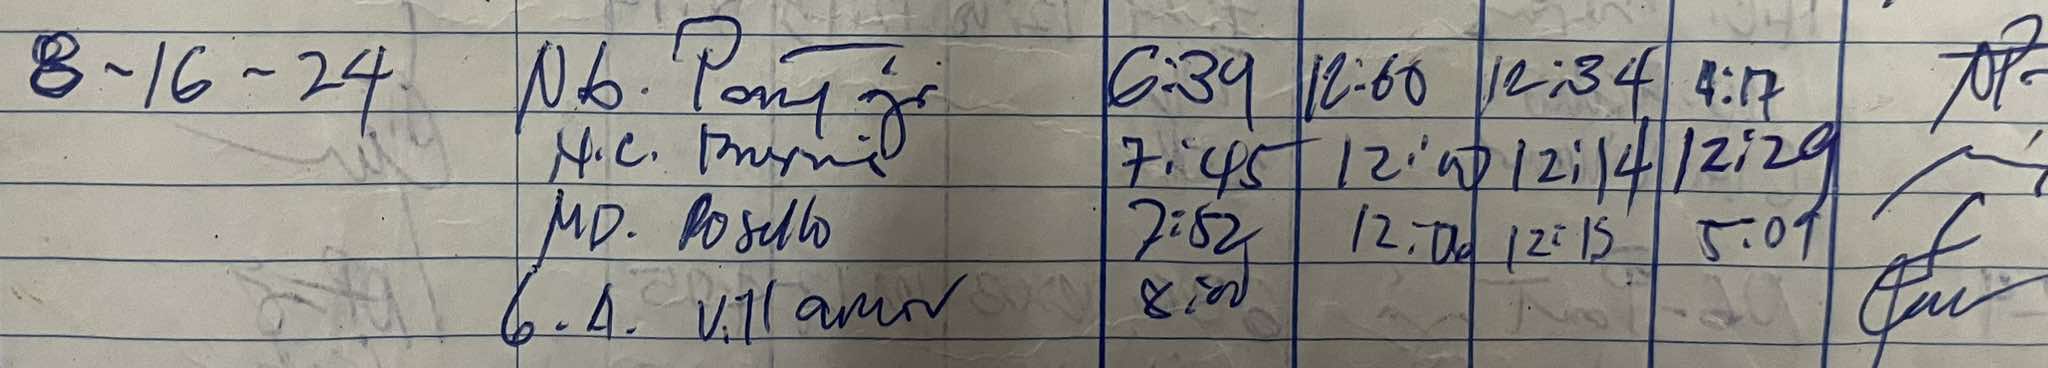 8-16-24 N.b. 6:39 12:00 12:34 4:17
H.C. 7:45 12:00 12:14 12:29
MD. Rosello 7:52 12:00 12:15 5:01
G.A. Villamor 8:00